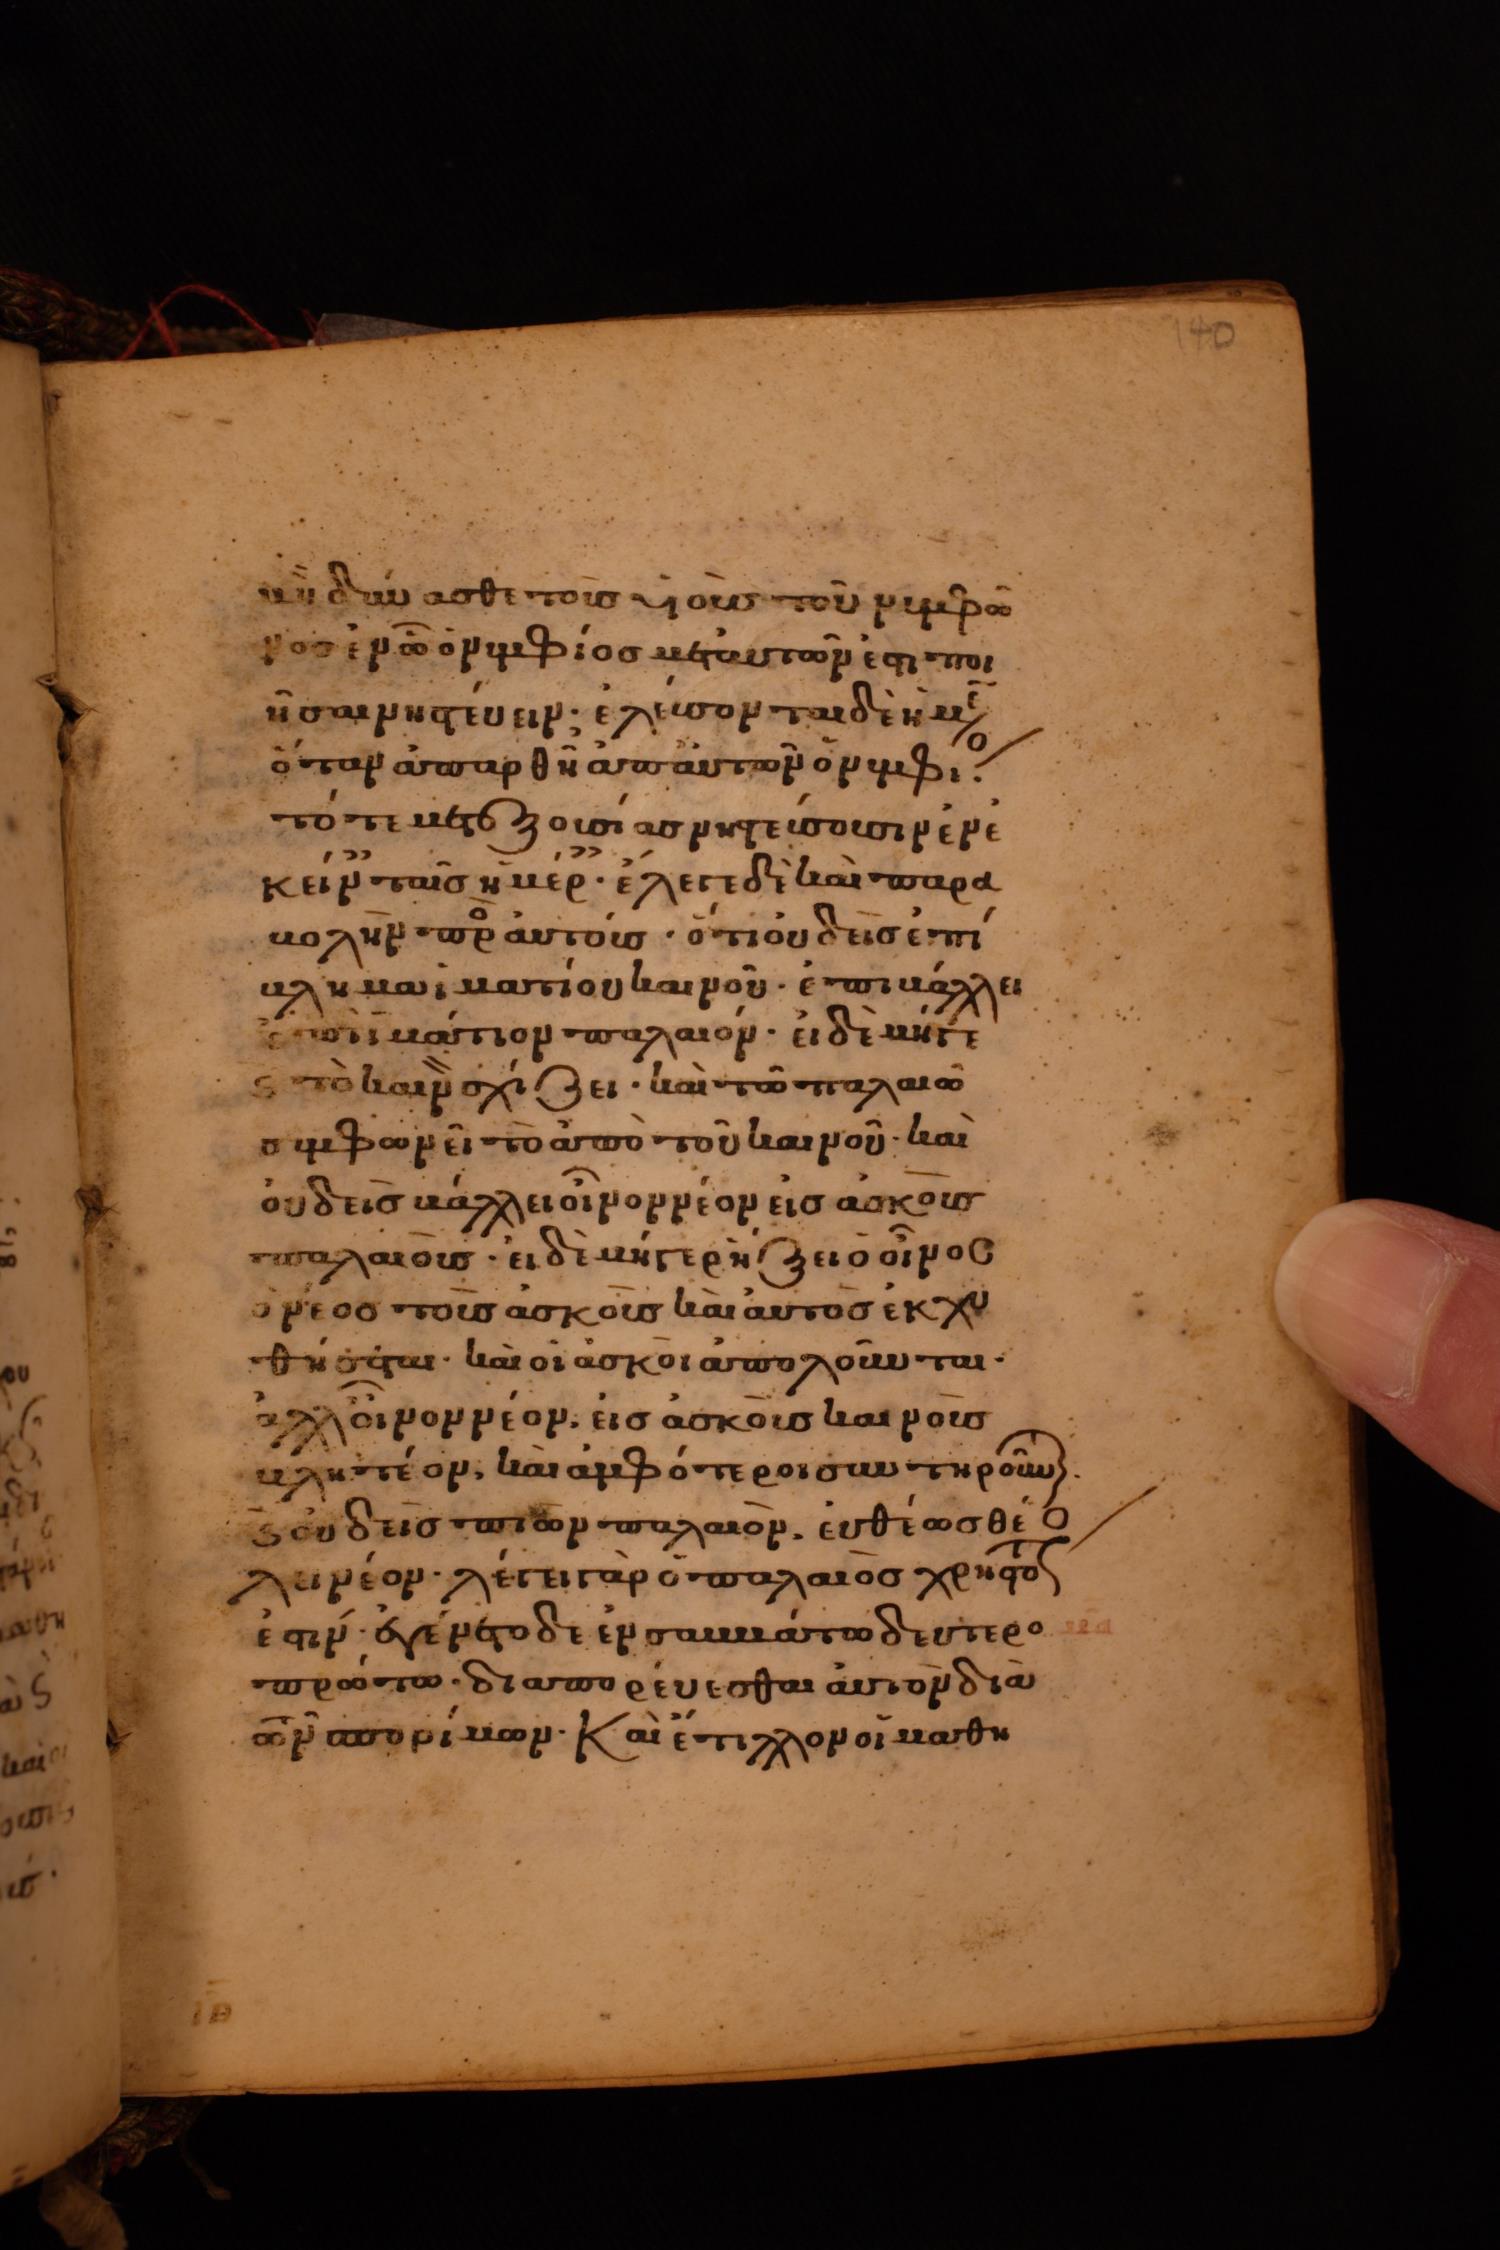 140
μὴ δύνασθε τοὺς υἱοὺς τοῦ νυμφῶ
νος ἐν ᾧ ὁ νυμφίος μετ αὐτῶν ἐστι ποι
ῆσαι νηστεύειν· ἐλεύσονται δὲ ἡμέ
ὅταν ἀπαρθῆ ἀπ αὐτῶν ὁ νυμφίο
τότε μετ ἐξουσίας νηστεύσουσιν ἐν ἐ
κείν ταῖς ἡμέρ· ἔλεγε δὲ καὶ παρα
βολὴν πρὸ αὐτούς· ὅτι οὐδεὶς ἐπί
βλημα ἱματίου καινοῦ· ἐπιβάλλει
ἐπὶ ἱμάτιον παλαιόν· εἰ δὲ μήγε
ϛ τὸ καιν σχίζει· καὶ τῶ παλαιῶ
συμφωνεῖ τὸ ἀπὸ τοῦ καινοῦ· καὶ
οὐδεὶς βάλλει οἶνον νέον εἰς ἀσκοὺς
παλαιοὺς· εἰ δὲ μήγε ρήξει ὁ οἶνος
ὁ νέος τοὺς ἀσκοὺς καὶ αὐτὸς ἐκχυ
θήσεται· καὶ οἱ ἀσκοὶ ἀπολοῦνται·
ἀλλ οἶνον νέον, εἰς ἀσκοὺς καινοὺς
βλητέον, καὶ ἀμφότεροι συντηροῦν
ϛ οὐδεὶς πιὼν παλαιὸν, εὐθέως θέ
λει νέον· λέγει γὰρ ὁ παλαιὸς χρηστό
ἐστιν· ἐγένετο δε ἐν σαββάτω δευτερο
πρώτω· διαπορεύεσθαι αὐτὸν διὰ
ῶν σπορίμων· Καὶ ἔτιλλον οἱ μαθη